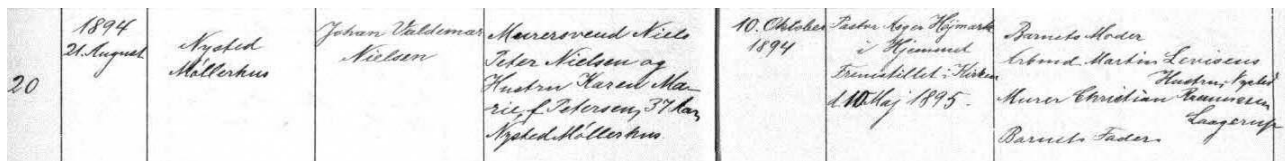 20
1894
21. August
Nysted
Møllerhus
Johan Valdemar
Nielsen
Murersvend Niels
Peter Nielsen og
Hustru Karen Ma-
rie, f. Petersen, 37 Aar,
Nysted Møllerhus.
10. Oktober
1894
Pastor Asger Højmark
i Hjemmet
Fremstillet i Kirken
d. 10 Maj 1895.
Barnets Moder
Arbmd. Martin Levisens
Hustru, Nysted
Murer Christian Rasmussen
Laagerup
Barnets Fader